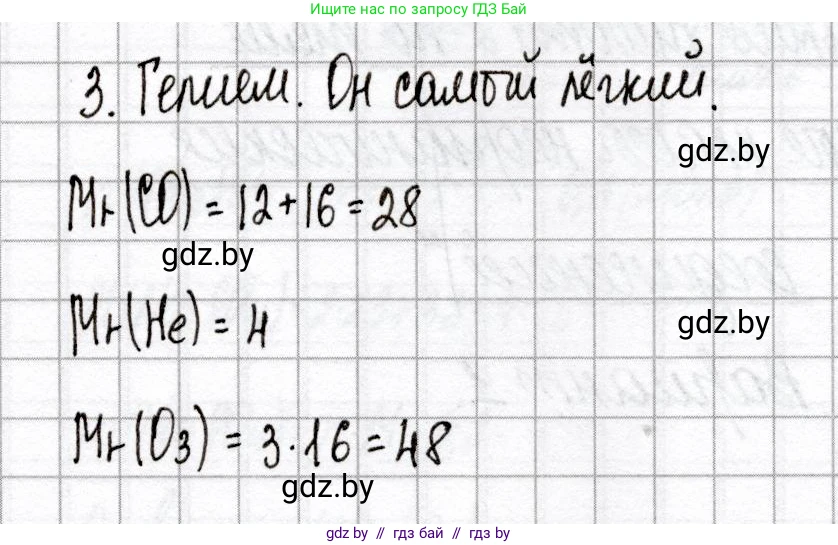 Ищите нас по запросу ГДЗ Бай
3. Гелием. Он самый лёгкий.
gdz.by
Mr(CO) = 12+16=28
gdz.by
Mr(He) = 4
gdz.by
Mr(O3) = 3·16=48
gdz.by
gdz by // гдз бай // гдз by